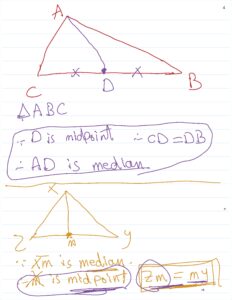 A
C
D
B
△ABC
∵ D is midpoint ∴ CD = DB
∴ AD is median
X
Z
m
y
∵ Xm is median
∴ m is midpoint
Zm = my